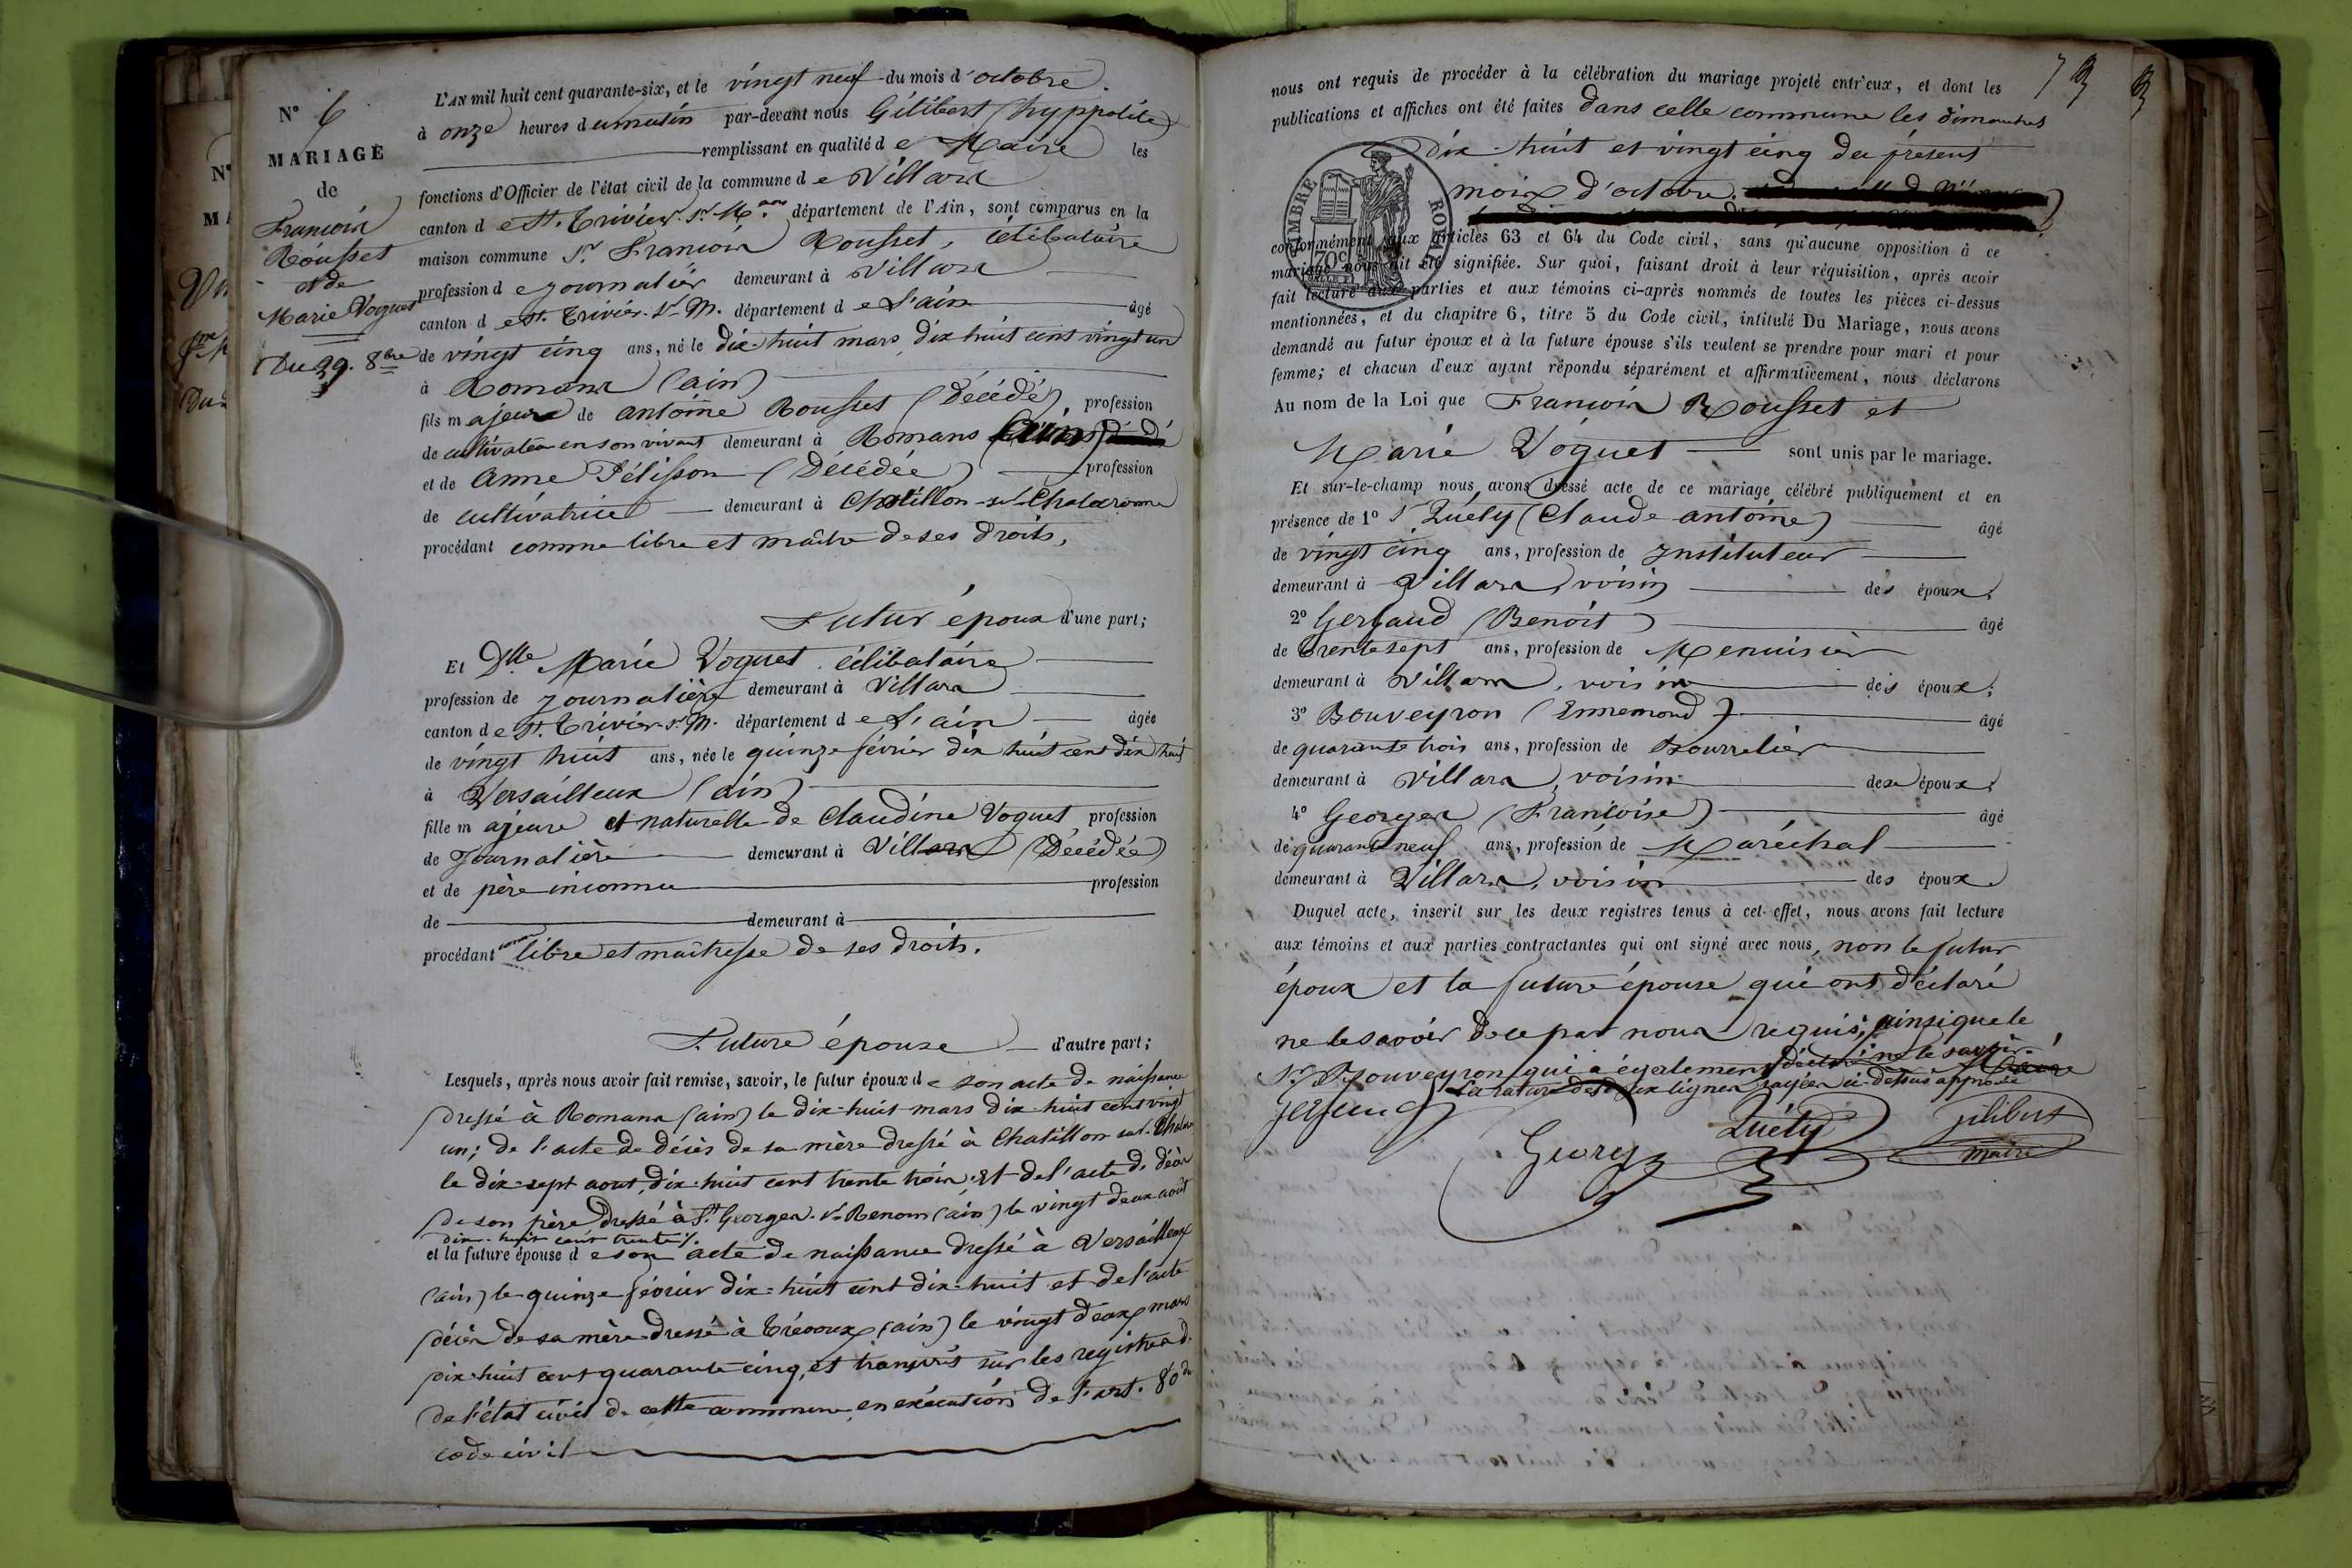 N° 6
MARIAGE
de
Francois
Rousset
et de
Marie Voguet
Du 29. 8bre
L'AN mil huit cent quarante-six, et le vingt neuf du mois d'octobre.
à onze heures du matin par-devant nous Gilibert (hyppolite)
remplissant en qualité de Maire les
fonctions d'Officier de l'état civil de la commune de Villars
canton de St. Trivier sr. Mons département de l'Ain, sont comparus en la
maison commune Sr. Francois Rousset, célibataire
profession de journalier demeurant à Villars
canton de St. Trivier Sr M. département de l'ain âgé
de vingt cinq ans, né le dix-huit mars dix huit cent vingt un
à Romans (ain)
fils majeur de antoine Rousset (Décédé) profession
de cultivateur en son vivant demeurant à Romans (ain)
et de Anne Pélisson (Décédée) profession
de cultivatrice demeurant à Chatillon-sr-Chalaronne
procédant comme libre et maître de ses droits,
Futur époux d'une part;
Et Dlle Marie Voguet célibataire
profession de journalière demeurant à Villars
canton de St. Trivier sr M. département de l'ain âgée
de vingt huit ans, née le quinze février dix huit cent dix huit
à Versailleux (ain)
fille majeure et naturelle de Claudine Voguet profession
de Journalière demeurant à Villars (Décédée)
et de père inconnu profession
de demeurant à
procédant comme libre et maîtresse de ses droits.
Future épouse d'autre part;
Lesquels, après nous avoir fait remise, savoir, le futur époux de son acte de naissance
dressé à Romans (ain) le dix-huit mars dix-huit cent vingt
un; de l'acte de décès de sa mère dressé à Chatillon sur-Chalar
le dix-sept aout dix-huit cent trente trois et de l'acte de décès
de son père dressé à St Georges-sr-Renom (ain) le vingt deux août
dix-huit cent trente
et la future épouse de son acte de naissance dressé à Versailleux
(ain) le quinze février dix-huit cent dix-huit et de l'acte
décès de sa mère dressé à Trévoux (ain) le vingt deux mars
dix-huit cent quarante cinq, et transcrit sur les registres de
de l'état civil de cette commune, en exécution de l'art. 80 du
code civil
73
nous ont requis de procéder à la célébration du mariage projeté entr'eux, et dont les
publications et affiches ont été faites dans cette commune les dimanches
dix-huit et vingt cinq du présent
mois d'octobre.
TIMBRE ROYAL
70c
conformément aux articles 63 et 64 du Code civil, sans qu'aucune opposition à ce
mariage nous ait été signifiée. Sur quoi, faisant droit à leur réquisition, après avoir
fait lecture aux parties et aux témoins ci-après nommés de toutes les pièces ci-dessus
mentionnées, et du chapitre 6, titre 5 du Code civil, intitulé Du Mariage, nous avons
demandé au futur époux et à la future épouse s'ils veulent se prendre pour mari et pour
femme; et chacun d'eux ayant répondu séparément et affirmativement, nous déclarons
Au nom de la Loi que Francois Rousset et
Marie Voguet sont unis par le mariage.
Et sur-le-champ nous avons dressé acte de ce mariage célébré publiquement et en
présence de 1° Sr Luély (Claude antoine) âgé
de vingt cinq ans, profession de Instituteur
demeurant à Villars, voisin des époux;
2° Gerfaud (Benoit) âgé
de trente sept ans, profession de Menuisier
demeurant à Villars, voisin des époux;
3° Bouveyron (Ennemond) âgé
de quarante trois ans, profession de Bourrelier
demeurant à Villars, voisin des époux;
4° Georges (Françoise) âgé
de quarante neuf ans, profession de Maréchal
demeurant à Villars, voisin des époux
Duquel acte, inscrit sur les deux registres tenus à cet effet, nous avons fait lecture
aux témoins et aux parties contractantes qui ont signé avec nous, non le futur
époux et la future épouse qui ont déclaré
ne le savoir de ce par nous requis, ainsi que le
Sr. Bouveyron qui a également déclaré ne le savoir.
la rature des deux lignes rayées ci-dessus approuvé
gerfaud
Georges
Luély
gilibert
maire